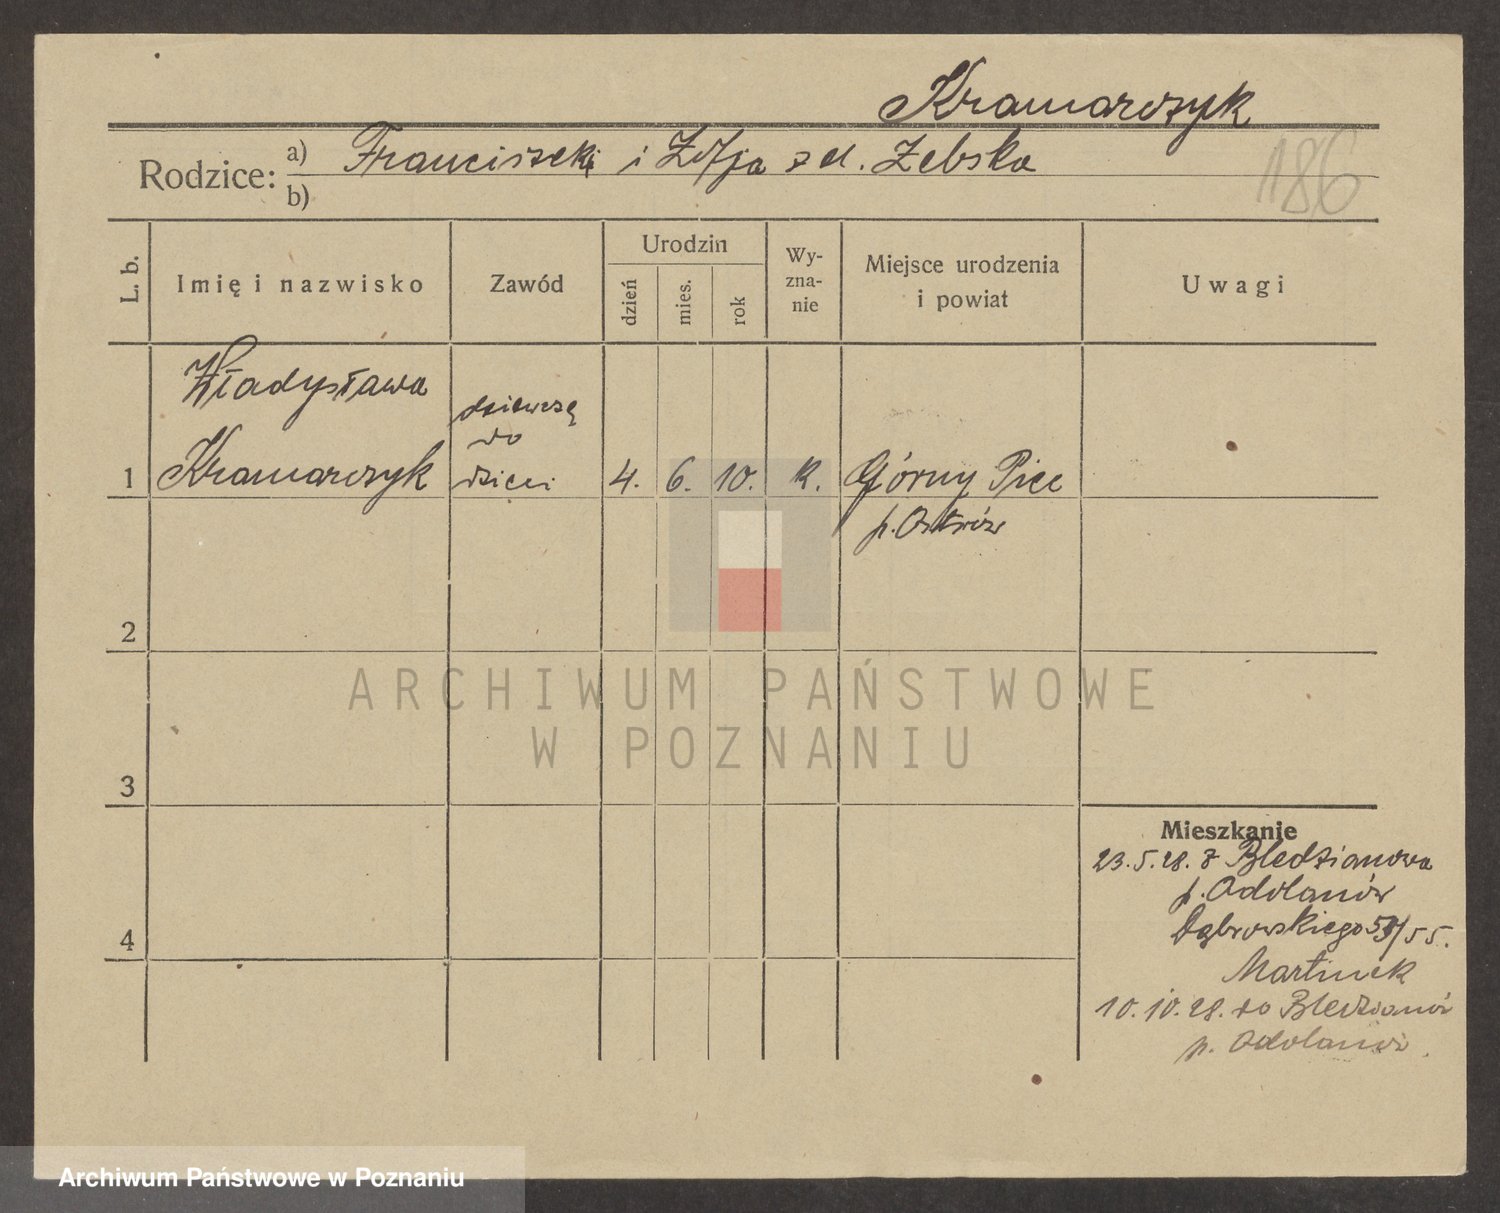 Kramarczyk
186
Rodzice: a) Franciszek i Zofja z d. Zebska
b)
L. b.
Imię i nazwisko
Zawód
Urodzin
dzień
mies.
rok
Wy-
zna-
nie
Miejsce urodzenia
i powiat
Uwagi
Władysława
dziewczę
do
1 Kramarczyk dzieci 4. 6. 10. k. Górny Piec
p. Ostrów
2
ARCHIWUM PAŃSTWOWE
W POZNANIU
3
Mieszkanie
23.5.28. z Bledzianowa
p. Adolanów
Dąbrowskiego 53/55.
4
Martinek
10.10.28. do Bledzianów
p. Adolanów
Archiwum Państwowe w Poznaniu